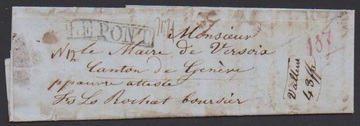 LE PONT
Monsieur
le Maire de Versoix
Canton de Genève
ppauvre attesté
Fs Ls Rochat boursier
Valleur
43 ff
157